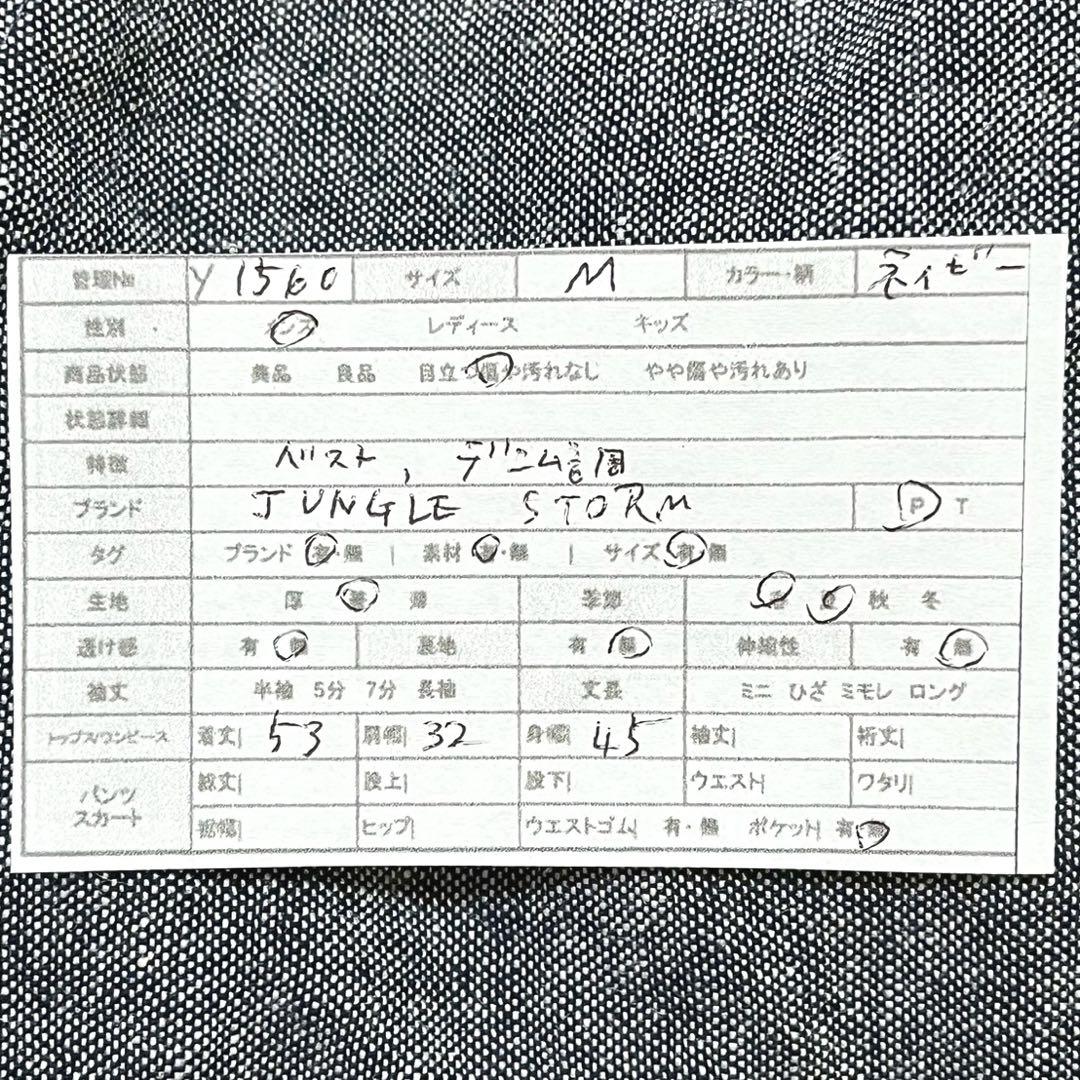 管理No Y 1560 サイズ M カラー・柄 ネイビー
性別 メンズ レディース キッズ
商品状態 美品 良品 目立つ傷や汚れなし やや傷や汚れあり
状態詳細
特徴 ベスト, デニム
ブランド JUNGLE STORM P T
タグ ブランド 有・無 | 素材 有・無 | サイズ 有・無
生地 厚 普 薄 季節 春 夏 秋 冬
透け感 有 無 裏地 有 無 伸縮性 有 無
袖丈 半袖 5分 7分 長袖 丈長 ミニ ひざ ミモレ ロング
トップス/ワンピース 着丈| 53 肩幅| 32 身幅| 45 袖丈| 裄丈|
パンツ スカート 総丈| 股上| 股下| ウエスト| ワタリ|
裾幅| ヒップ| ウエストゴム| 有・無 ポケット| 有 無